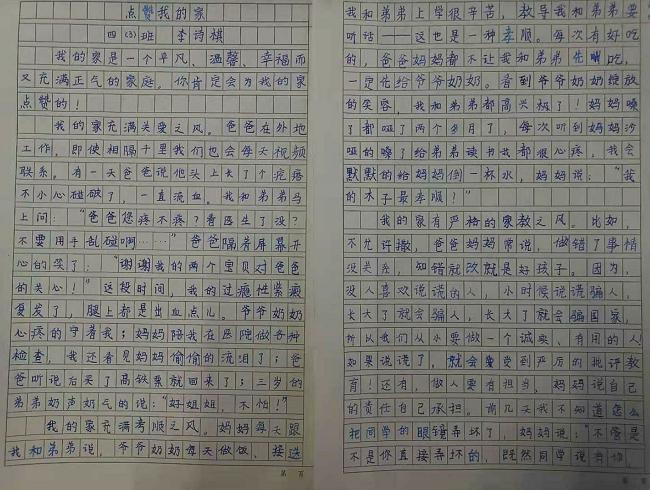 点赞我的家
四(3)班 李诗棋
我的家是一个平凡、温馨、幸福而
又充满正气的家庭。你肯定会为我的家
点赞的!
我的家充满关爱之风。爸爸在外地
工作,即使相隔千里我们也会每天视频
联系。有一天爸爸说他头上长了个疙瘩
不小心碰破了,一直流血。我和弟弟马
上问:“爸爸您疼不疼?看医生了没?
不要用手乱碰啊……”爸爸隔着屏幕开
心的笑了:“谢谢我的两个宝贝对爸爸
的关心!”这段时间,我的过敏性紫癜
复发了,腿上都是出血点儿。爷爷奶奶
心疼的守着我;妈妈陪我在医院做各种
检查,我还看见妈妈偷偷的流泪了;爸
爸听说后买了高铁票就回来了;三岁的
弟弟奶声奶气的说:“好姐姐,不怕!”
我的家充满孝顺之风。妈妈每天跟
我和弟弟说,爷爷奶奶每天做饭、接送
我和弟弟上学很辛苦,教导我和弟弟要
听话——这也是一种孝顺。每次有好吃
的,爸爸妈妈都不让我和弟弟先嚐吃,
一定先给爷爷奶奶。看到爷爷奶奶绽放
的笑容,我和弟弟都高兴极了!妈妈嗓
了都哑了两个多月了,每次听到妈妈沙
哑的嗓了给弟弟读书我都很心疼,我会
默默的给妈妈倒一杯水,妈妈说:“我
的木子最孝顺!”
我的家有严格的家教之风。比如,
不允许撒,爸爸妈妈常说,做错了事情
没关系,知错就改就是好孩子。因为,
没人喜欢说谎的人,小时候说谎骗人,
长大了就会骗人,长大了就会骗国家,
所以我们从小要做一个诚实、有用的人!
如果说谎了,就会要受到严厉的批评教
育!还有,做人要有担当,妈妈说自己
的责任自己承担。前几天我不知道怎么
把同学的眼镜弄坏了,妈妈说:“不管是
不是你直接弄坏的,既然同学说有你,
第 页